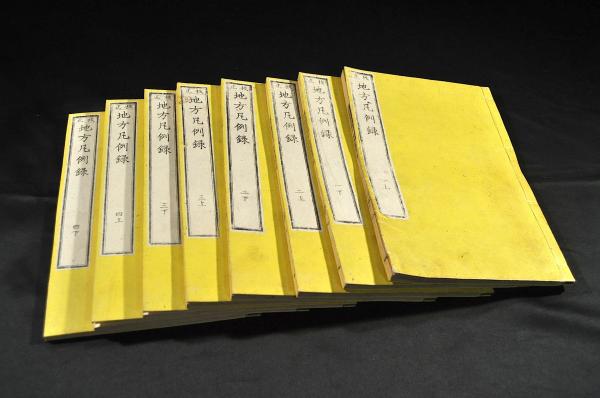 校正
地方凡例録
一上
校正
地方凡例録
一下
校正
地方凡例録
二上
校正
地方凡例録
二下
校正
地方凡例録
三上
校正
地方凡例録
三下
校正
地方凡例録
四上
校正
地方凡例録
四下